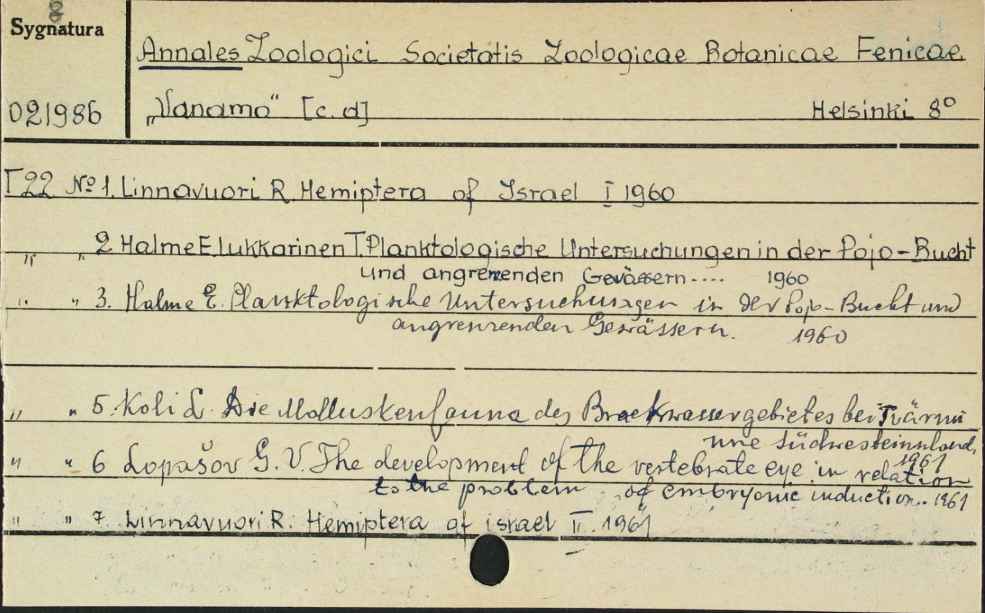 8
Sygnatura
021986
Annales Zoologici Societatis Zoologicae Botanicae Fenicae
„Vanamo" [c.d] Helsinki 8°
T22 No 1. Linnavuori R. Hemiptera of Israel I 1960
„ „ 2 Halme E. Lukkarinen T. Planktologische Untersuchungen in der Pojo-Bucht
und angrenzenden Gewässern.... 1960
„ „ 3. Halme E. Planktologische Untersuchungen in der Pojo-Bucht und
angrenzenden Gewässern. 1960
„ „ 5. Koli L. Die Molluskenfauna des Brackwassergebietes bei Tvärmi
nne Südwestfinnland. 1961
„ „ 6 Lopašov G.V. The development of the vertebrate eye in relation
to the problem of embryonic induction.. 1961
„ „ 7 Linnavuori R. Hemiptera of israel II. 1961